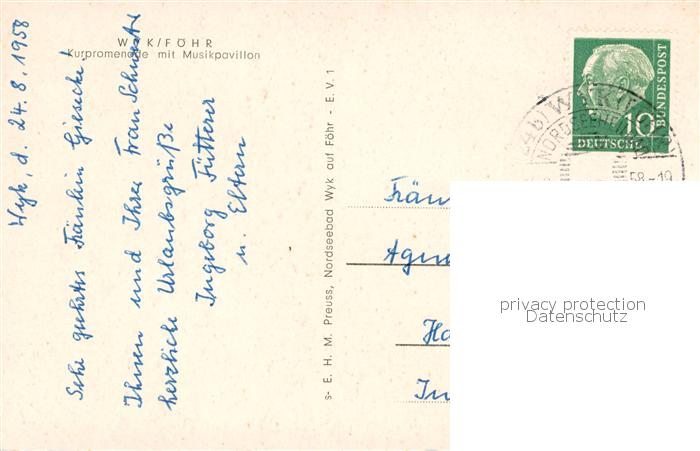 WYK/FÖHR
Kurpromenade mit Musikpavillon
Wyk, d. 24. 8. 1958
Sehr geehrtes Fräulein Giesecke!
Ihnen und Ihrer Frau Schwester
herzliche Urlaubsgrüße
Ingeborg Fütterer
u. Eltern
s- E. H. M. Preuss, Nordseebad Wyk auf Föhr - E. V. 1
10
DEUTSCHE
BUNDESPOST
(24b) WYK
NORDSEEBAD
58-19
Fräu
Agne
Ha
In
privacy protection
Datenschutz